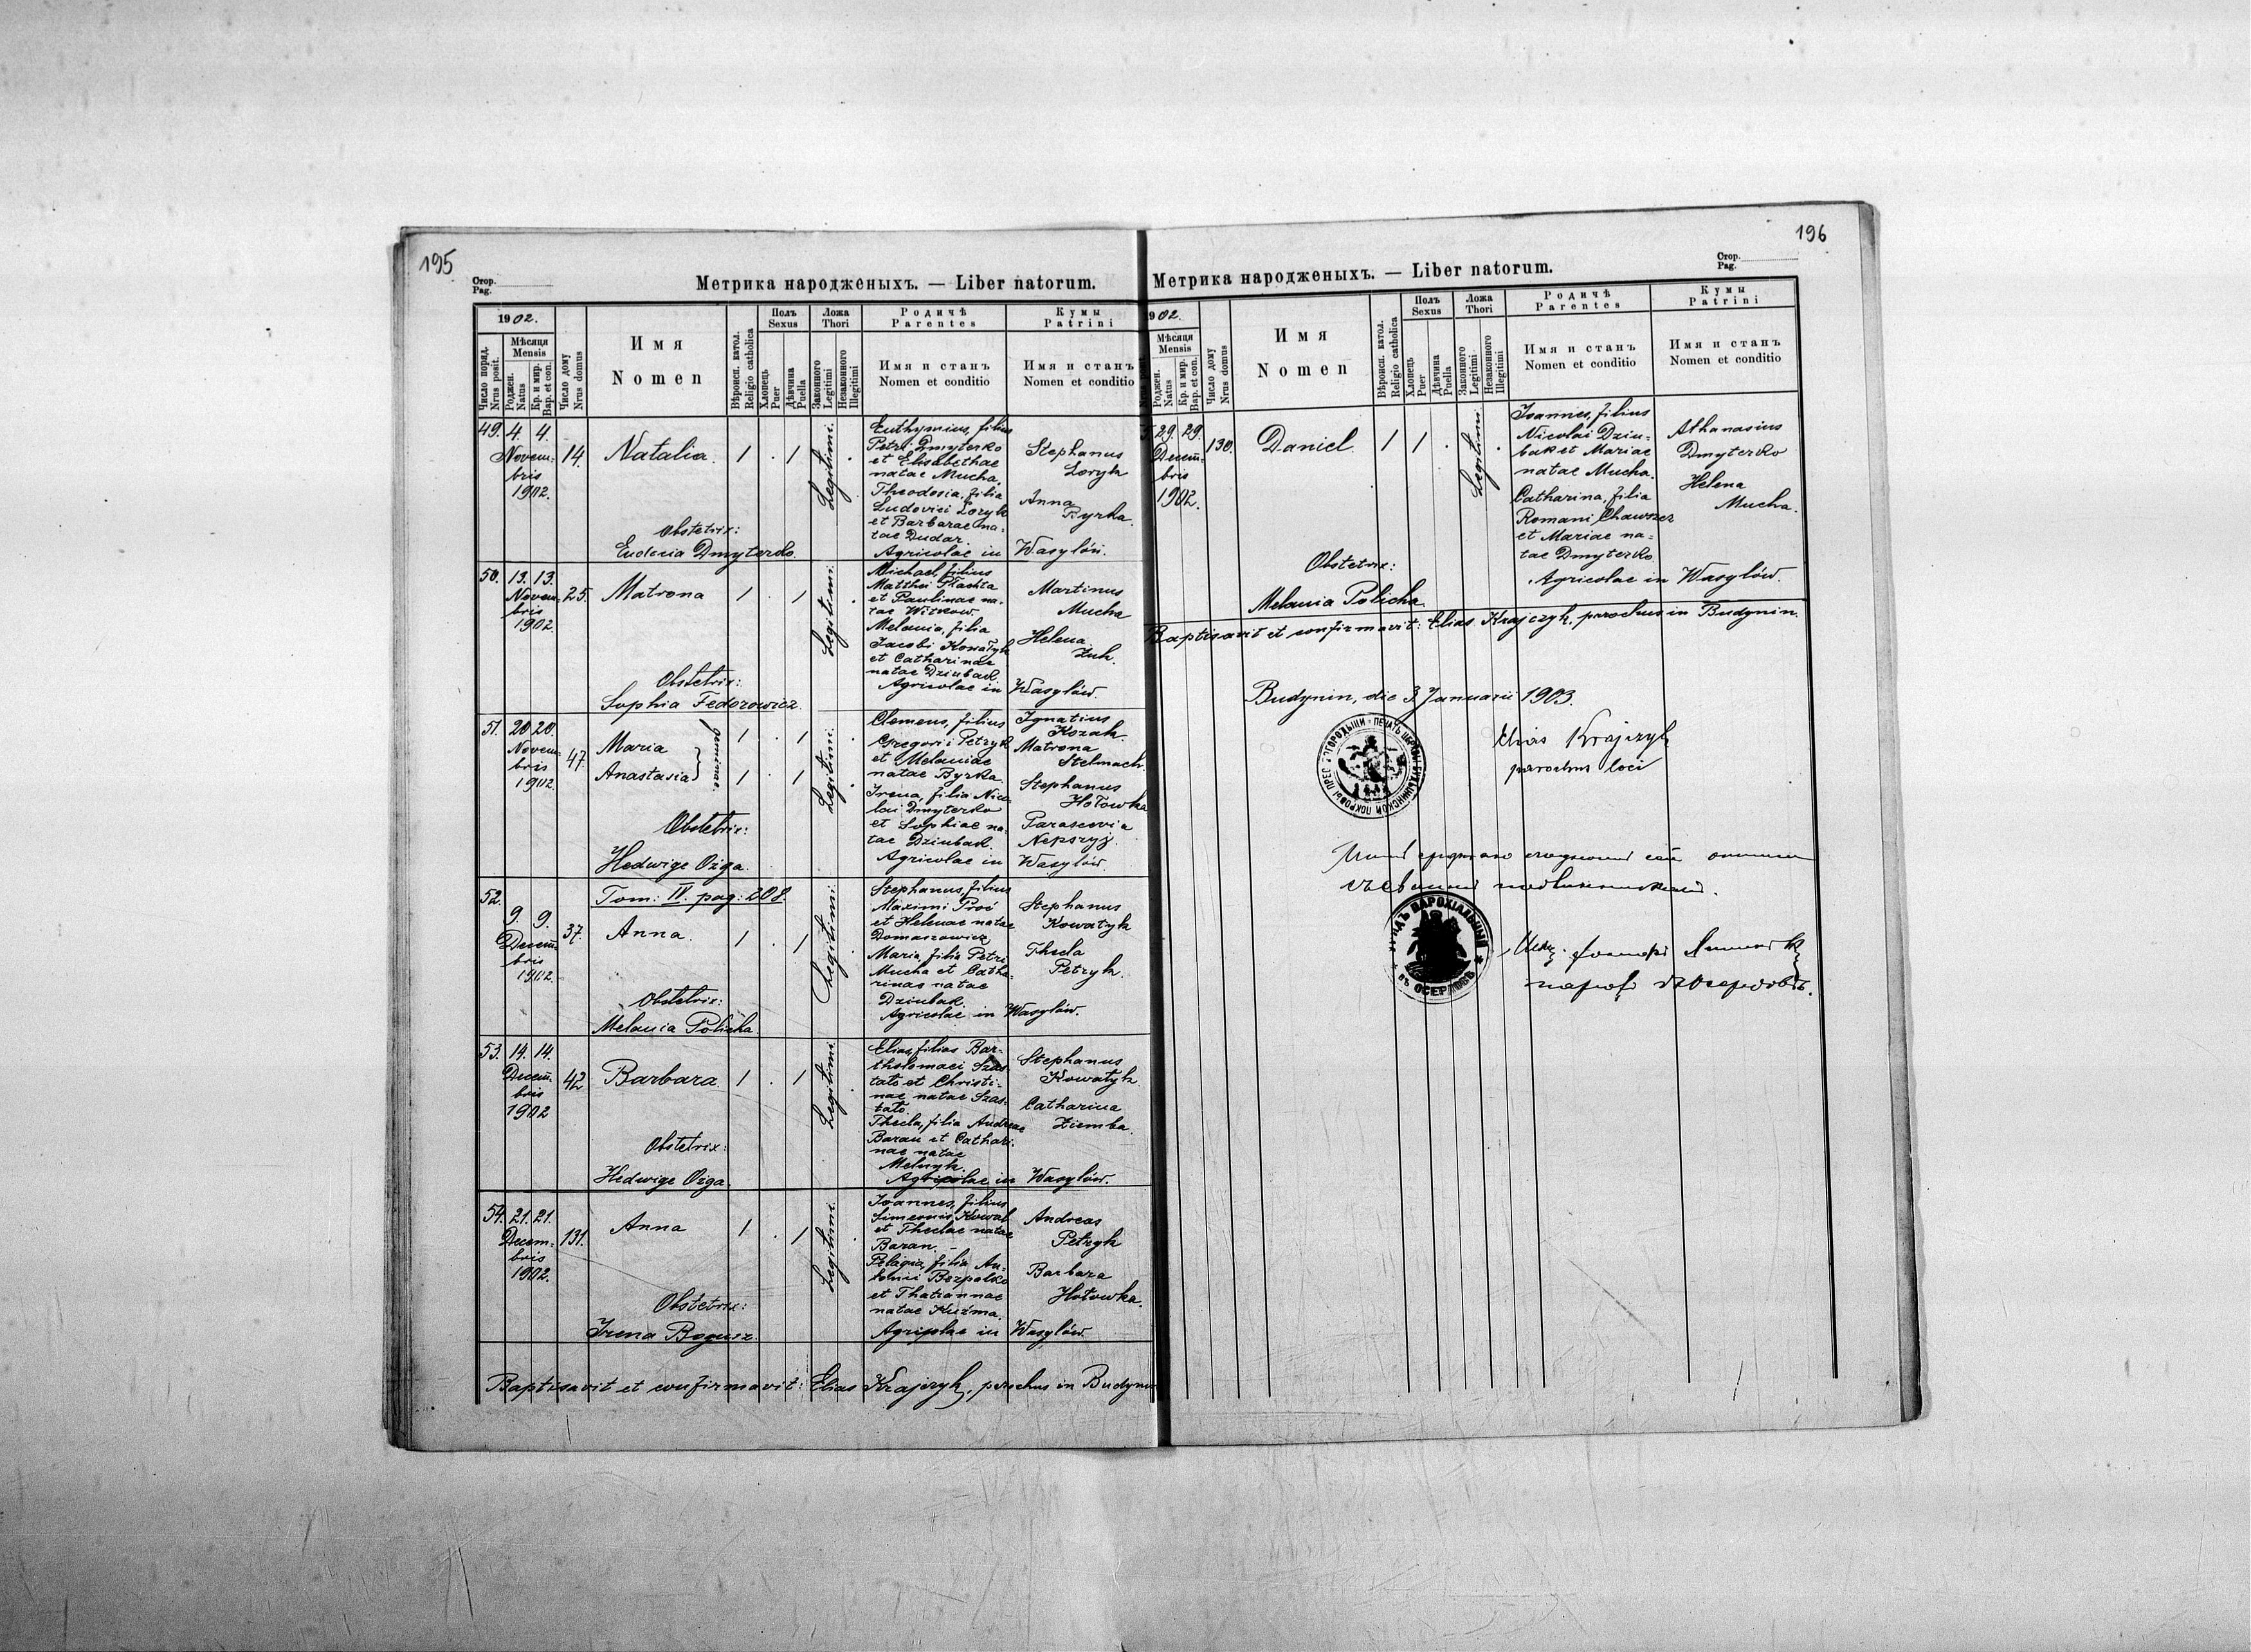 195
Стор.
Pag.
Метрика народженыхъ. — Liber natorum.
1902.
Число поряд.
Nrus posit.
Мѣсяця
Mensis
Роджен.
Natus
Кр. и мир.
Bap. et con.
Число дому
Nrus domus
Имя
Nomen
Вѣроисп. катол.
Religio catholica
Полъ
Sexus
Хлопець
Puer
Дѣвчина
Puella
Ложа
Thori
Законного
Legitimi
Незаконного
Illegitimi
Родичѣ
Parentes
Имя и станъ
Nomen et conditio
Кумы
Patrini
Имя и станъ
Nomen et conditio
49. 4. 4.
Novem-
bris
1902.
14.
Natalia.
1 . 1
Legitimi.
Obstetrix:
Eudocia Dmyterko.
Euthymius, filius
Petri Dmyterko
et Elisabethae
natae Mucha,
Theodosia, filia
Ludovici Loryk
et Barbarae na-
tae Dudar.
Agricolae in Wasylów.
Stephanus
Loryk
Anna
Byrka.
50. 13. 13.
Novem-
bris
1902.
25.
Matrona
1 . 1
Legitimi.
Obstetrix:
Sophia Fedorowicz.
Michael, filius
Matthei Płachta
et Paulinae na-
tae Witkow
Melania, filia
Jacobi Kowałyk
et Catharinae
natae Dziubak.
Agricolae in Wasylów.
Martinus
Mucha
Helena
Żuk.
51. 20. 20.
Novem-
bris
1902.
47.
Maria
Anastasia
geminae.
1 . 1
1 . 1
Legitimi.
Obstetrix:
Hedwige Ożga.
Clemens, filius
Gregorii Petryk
et Melaniae
natae Byrka.
Irena, filia Nico-
lai Dmyterko
et Sophiae na-
tae Dziubak.
Agricolae in Wasylów.
Ignatius
Kozak.
Matrona
Stelmach.
Stephanus
Hołowka
Parascevia
Nepszyj.
52.
9. 9.
Decem-
bris
1902.
37.
Tom: IV. pag: 208.
Anna.
1 . 1
Legitimi.
Obstetrix:
Melania Policha.
Stephanus, filius
Maximi Proć
et Helenae natae
Domaszowicz
Maria, filia Petri
Mucha et Catha-
rinae natae
Dziubak.
Agricolae in Wasylów.
Stephanus
Kowałyk
Thecla
Petryk.
53. 14. 14.
Decem-
bris
1902
42
Barbara.
1 . 1
Legitimi.
Obstetrix:
Hedwige Ożga.
Elias, filius Bar-
tholomaei Szas-
tało et Christi-
nae natae Szas-
tało.
Thecla, filia Andreae
Baran et Cathari-
nae natae
Melnyk.
Agricolae in Wasylów.
Stephanus
Kowałyk
Catharina
Ziemba.
54. 21. 21.
Decem-
bris
1902.
131.
Anna
1 . 1
Legitimi.
Obstetrix:
Irena Bogusz.
Joannes, filius
Simeonis Kowal
et Theclae natae
Baran.
Pelagia, filia An-
tonii Bezpalko
et Thatiannae
natae Kuźma.
Agricolae in Wasylów.
Andreas
Petryk
Barbara
Hołowka.
Baptisavit et confirmavit: Elias Krajczyk, parochus in Budynin
196
Стор.
Pag.
Метрика народженыхъ. — Liber natorum.
902.
Мѣсяця
Mensis
Роджен.
Natus
Кр. и мир.
Bap. et con.
Число дому
Nrus domus
Имя
Nomen
Вѣроисп. катол.
Religio catholica
Полъ
Sexus
Хлопець
Puer
Дѣвчина
Puella
Ложа
Thori
Законного
Legitimi
Незаконного
Illegitimi
Родичѣ
Parentes
Имя и станъ
Nomen et conditio
Кумы
Patrini
Имя и станъ
Nomen et conditio
29. 29.
Decem-
bris
1902.
130.
Daniel.
1 1 .
Legitimi.
Obstetrix:
Melania Policha.
Joannes, filius
Nicolai Dziu-
bak et Mariae
natae Mucha.
Catharina, filia
Romani Chawszcz
et Mariae na-
tae Dmyterko
Agricolae in Wasylów.
Athanasius
Dmyterko
Helena
Mucha.
Baptisavit et confirmavit: Elias Krajczyk, parochus in Budynin.
Budynin, die 3 Januarii 1903.
Elias Krajczyk
parochus loci
УРЯДЪ ПАРОХІАЛЬНЫЙ
въ ОСЕРДОВѢ